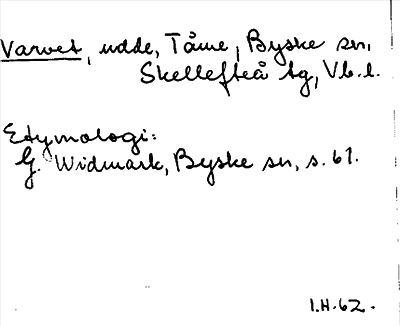 Varvet, udde, Tåme, Byske sn,
Skellefteå tg, Vb. l.
Etymologi:
G. Widmark, Byske sn, s. 61.
I.H.62.